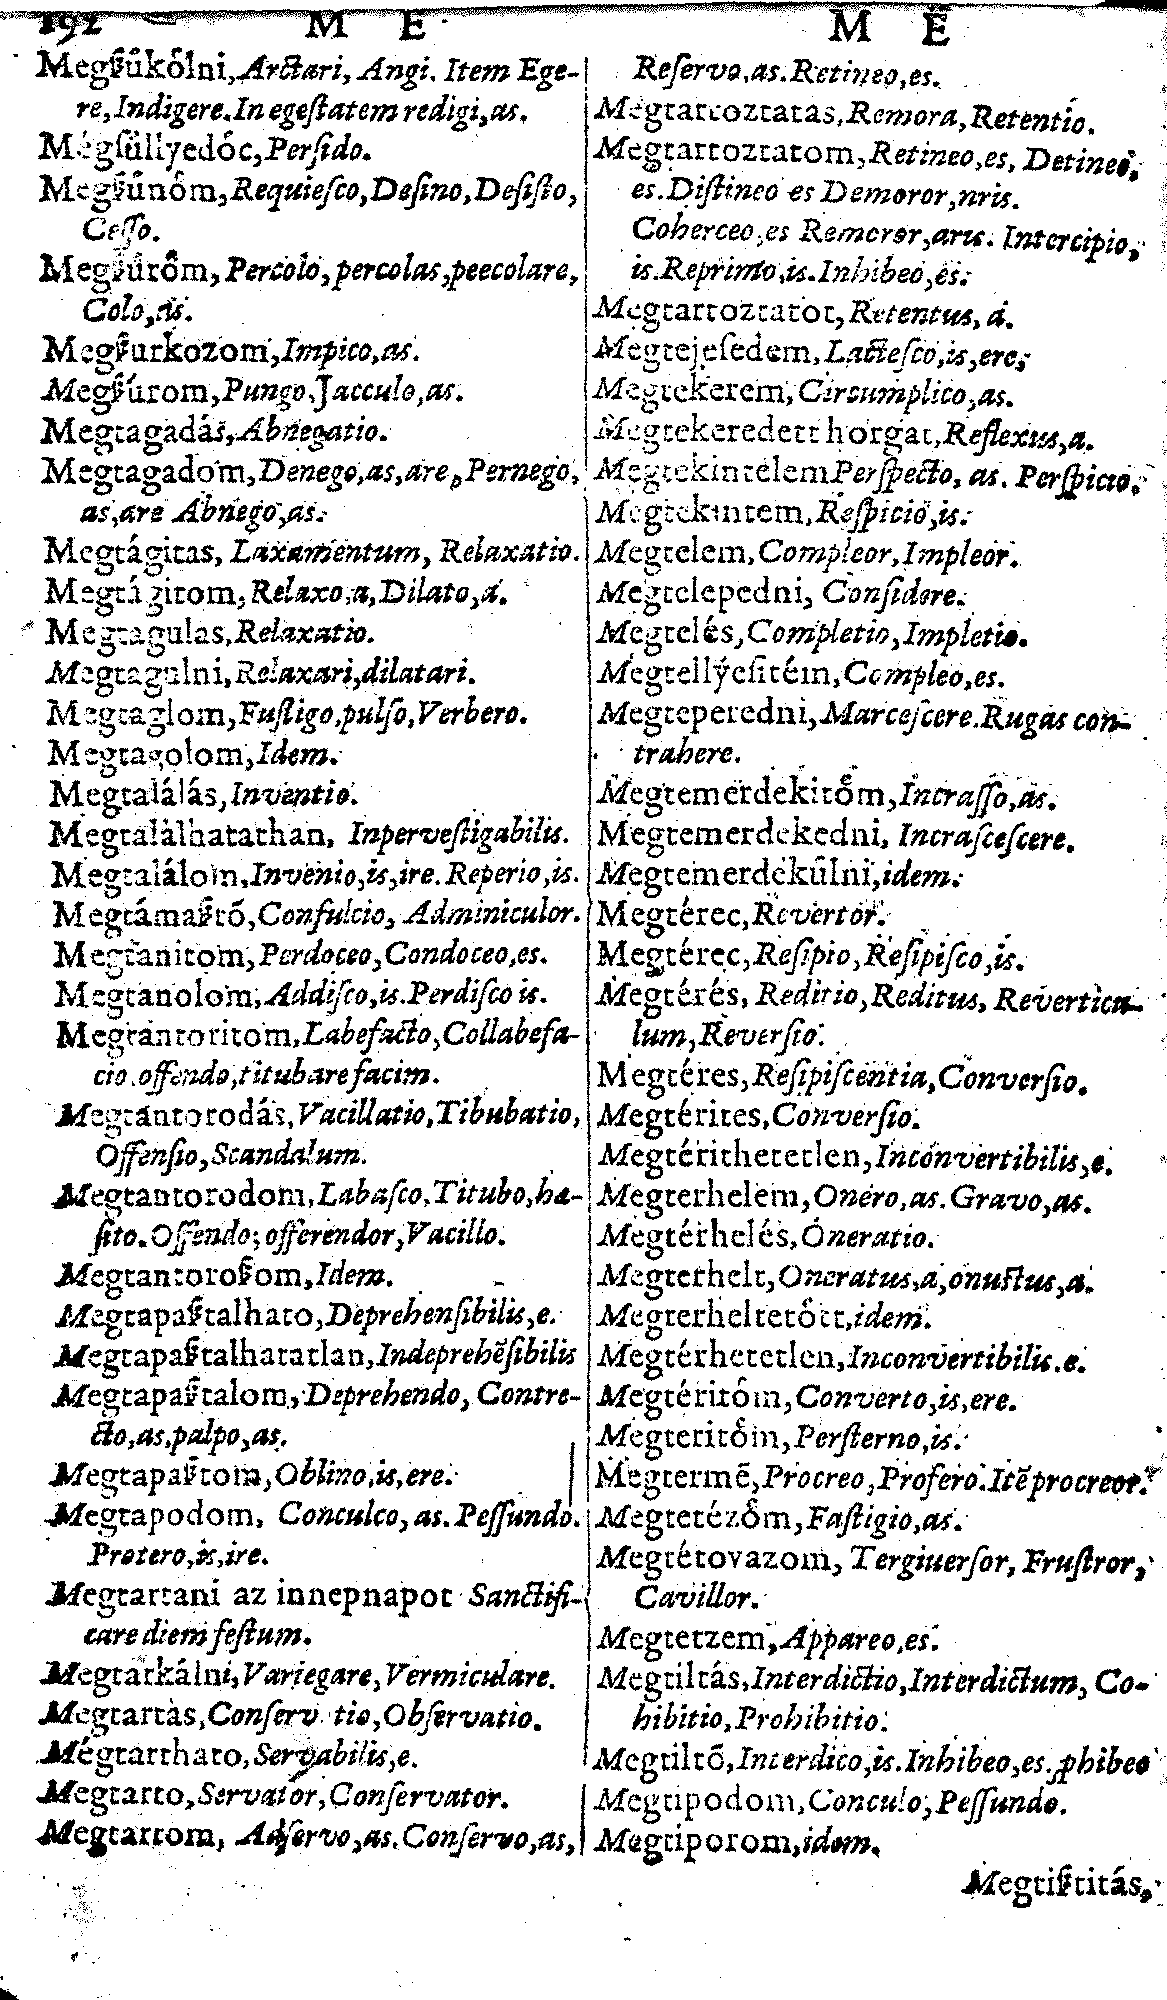 192 M E
Megſzűkőlni, Arctari, Angi. Item Ege-
re, Indigere. In egeſtatem redigi, as.
Megſüllyedóc, Perſido.
Megſzűnőm, Requieſco, Deſino, Deſiſto,
Ceſſo.
Megſzűrőm, Percolo, percolas, peecolare,
Colo, as.
Megſzurkozom, Impico, as.
Megſzúrom, Pungo, Jacculo, as.
Megtagadás, Abnegatio.
Megtagadom, Denego, as, are, Pernego,
as, are Abnego, as.
Megtágitas, Laxamentum, Relaxatio.
Megtágitom, Relaxo, a, Dilato, á.
Megtagulas, Relaxatio.
Megtagulni, Relaxari, dilatari.
Megtaglom, Fuſtigo, pulſo, Verbero.
Megtagolom, Idem.
Megtalálás, Inventio.
Megtalálhatathan, Inperveſtigabilis.
Megtalálom, Invenio, is, ire. Reperio, is.
Megtámaſztō, Confulcio, Adminiculor.
Megtanitom, Perdoceo, Condoceo, es.
Megtanolom, Addiſco, is. Perdiſco is.
Megtantoritom, Labefacto, Collabefa-
cio. offendo, titubare facim.
Megtantorodás, Vacillatio, Tibubatio,
Offenſio, Scandalum.
Megtantorodom, Labaſco, Titubo, hæ-
ſito. Offendo; offerendor, Vacillo.
Megtantoroſzom, Idem.
Megtapaſztalhato, Deprehenſibilis, e.
Megtapaſztalhatatlan, Indeprehēſibilis
Megtapaſztalom, Deprehendo, Contre-
cto, as, palpo, as.
Megtapaſztom, Oblino, is, ere.
Megtapodom, Conculco, as. Peſſundo.
Protero, is, ire.
Megtartani az innepnapot Sanctifi-
care diem feſtum.
Megtarkálni, Variegare, Vermiculare.
Megtartás, Conſerv tio, Obſervatio.
Mégtarthato, Servabilis, e.
Megtarto, Servator, Conſervator.
Megtartom, Adſervo, as. Conſervo, as,
M Ē
Reſervo, as. Retineo, es.
Megtartoztatas, Remora, Retentio.
Megtartoztatom, Retineo, es, Detineo,
es. Diſtineo es Demoror, nris.
Coherceo, es Remoror, aris. Intercipio,
is. Reprimo, is. Inhibeo, es.
Megtartoztatot, Retentus, a.
Megtejeſedem, Lacteſco, is, ere,
Megtekerem, Circumplico, as.
Megtekeredett horgat, Reflexus, a.
Megtekintélem Perſpecto, as. Perſpicio.
Megtekintem, Reſpicio, is.
Megtelem, Compleor, Impleor.
Megtelepedni, Conſidere.
Megtelés, Completio, Impletio.
Megtellyeſitém, Compleo, es.
Megteperedni, Marceſcere. Rugas con-
trahere.
Megtemerdekitőm, Incraſſo, as.
Megtemerdekedni, Incraſceſcere.
Megtemerdekűlni, idem.
Megtérec, Revertor.
Megtérec, Reſipio, Reſipiſco, is.
Megtérés, Reditio, Reditus, Reverticu-
lum, Reverſio.
Megtéres, Reſipiſcentia, Converſio.
Megtérites, Converſio.
Megtérithetetlen, Inconvertibilis, e.
Megterhelem, Onero, as. Gravo, as.
Megtérhelés, Oneratio.
Megterhelt, Oneratus, a, onuſtus, a.
Megterheltetőtt, idem.
Megtérhetetlen, Inconvertibilis. e.
Megtéritőm, Converto, is, ere.
Megteritőm, Perſterno, is.
Megtermē, Procreo, Profero. Itē procreor.
Megtetézőm, Faſtigio, as.
Megtétovazom, Tergiuerſor, Fruſtror,
Cavillor.
Megtetzem, Appareo, es.
Megtiltás, Interdictio, Interdictum, Co-
hibitio, Prohibitio.
Megtiltō, Interdico, is. Inhibeo, es. ꝓhibeo
Megtipodom, Conculo, Peſſundo.
Megtiporom, idem.
Megtiſztitás,